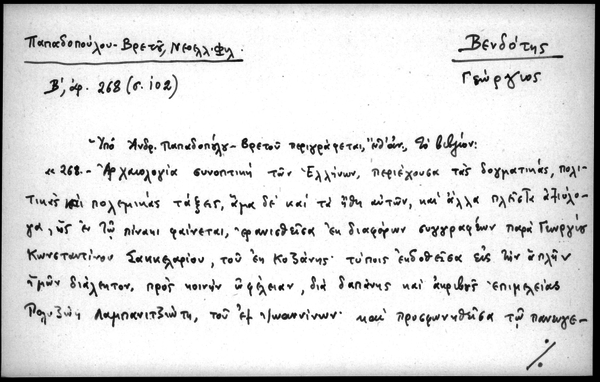 Παπαδοπούλου-Βρετοῦ, Νεοελλ. Φιλ.
Βενδότης
Γεώργιος
Β', ἀρ. 268 (σ. 102)
Ὑπὸ Ἀνδρ. Παπαδοπούλου-Βρετοῦ περιγράφεται, ἔνθ' ἀν., τὸ βιβλίον:
« 268.- Ἀρχαιολογία συνοπτικὴ τῶν Ἑλλήνων, περιέχουσα τὰς δογματικάς, πολι-
τικὰς καὶ πολεμικὰς τάξεις, ἅμα δὲ καὶ τὰ ἤθη αὐτῶν, καὶ ἄλλα πλεῖστα ἀξιόλο-
γα, ὡς ἐν τῷ πίνακι φαίνεται, ἐρανισθεῖσα ἐκ διαφόρων συγγραφέων παρὰ Γεωργίου
Κωνσταντίνου Σακκελαρίου, τοῦ ἐκ Κοζάνης· τύποις ἐκδοθεῖσα εἰς τὴν ἁπλῆν
ἡμῶν διάλεκτον, πρὸς κοινὴν ὠφέλειαν, διὰ δαπάνης καὶ ἀκριβοῦς ἐπιμελείας
Πολυζώη Λαμπανιτζιώτη, τοῦ ἐξ Ἰωαννίνων· καὶ προσφωνηθεῖσα τῷ πανευγε-
./.